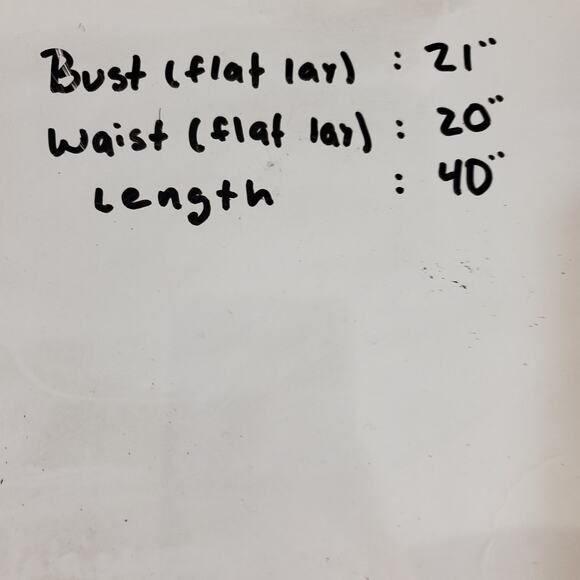 Bust (flat lay) : 21"
Waist (flat lay) : 20"
Length : 40"